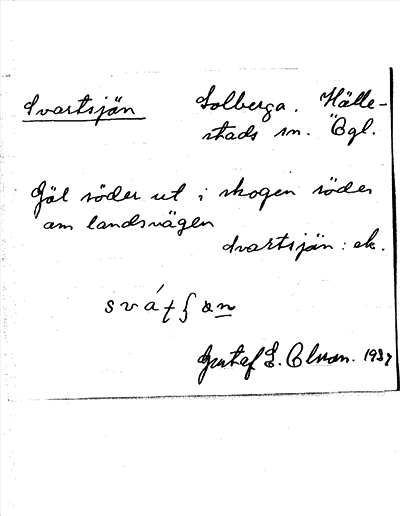 Svartsjän Solberga. Hälle-
stads sn. Ögl.
Göl söder ut i skogen söder
om landsvägen
Svartsjän : ek.
Gustaf E. 1937